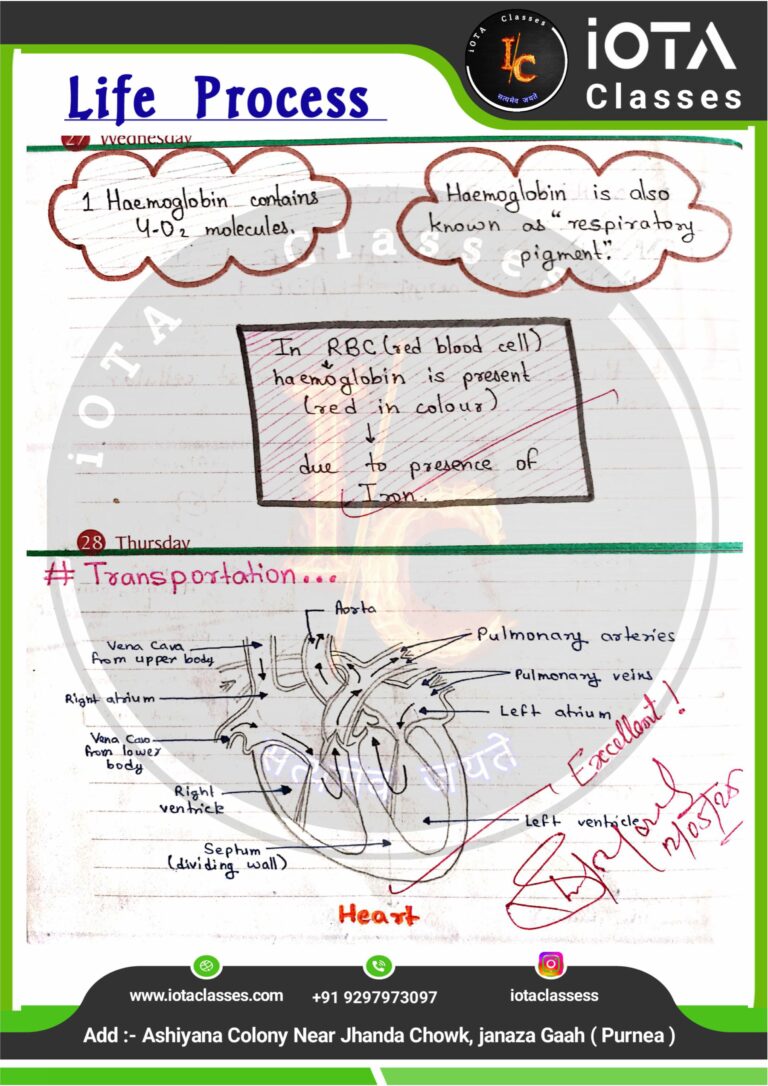 iOTA Classes
I/C
सत्यमेव जयते
iOTA
Classes
Life Process
27 Wednesday
1 Haemoglobin contains
4-O₂ molecules.
Haemoglobin is also
known as "respiratory
pigment".
In RBC (red blood cell)
↓
haemoglobin is present
(red in colour)
↓
due to presence of
Iron.
iOTA Classes
I/C
28 Thursday
# Transportation...
Aorta
Vena Cava
from upper body
Pulmonary arteries
Right atrium
Pulmonary veins
Left atrium
Vena Cava
from lower
body
सत्यमेव जयते
Excellent!
Right
ventricle
Left ventricle
Septum
(dividing wall)
12/05/25
Heart
www.iotaclasses.com
+91 9297973097
iotaclassess
Add :- Ashiyana Colony Near Jhanda Chowk, janaza Gaah ( Purnea )